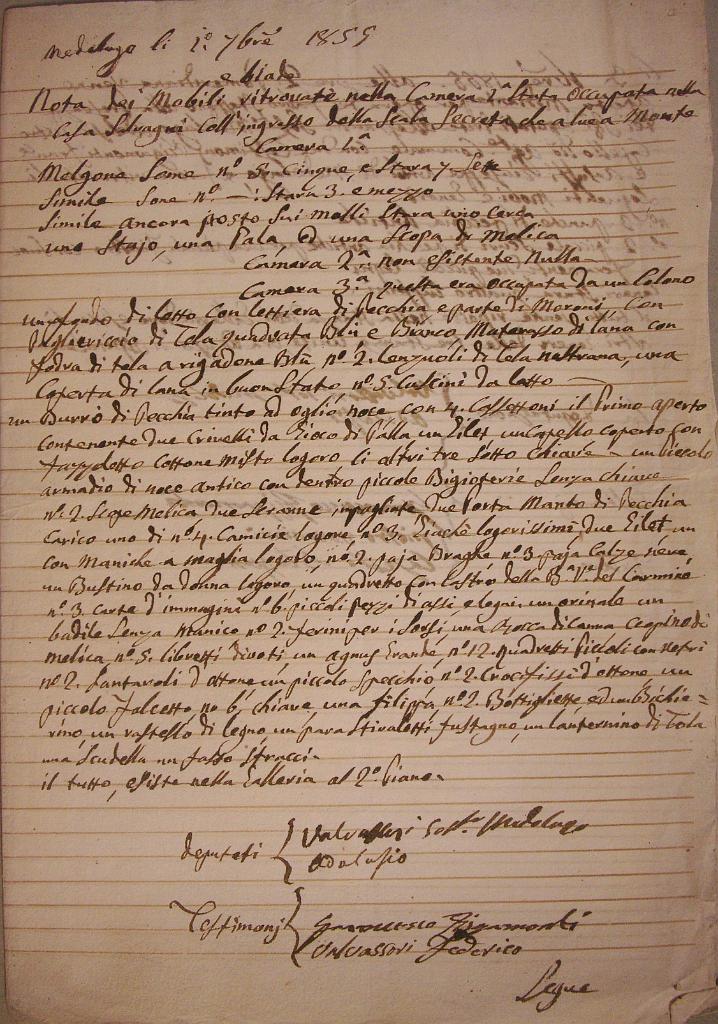 Medolago li 1.º 7bre 1855
e biade
Nota dei Mobili ritrovati nella Camera 1.ª Stata occupata nella
Casa Selvagni coll'ingresso della Scala Secreta che a luca Monte
Camera 1.ª
Melgone Some nº 5. Cinque, e Stara 7 Sette
Simile Some Nº — : Stara 3. e mezzo
Simile ancora posto sui Stara uno cerca
uno Stajo, una Pala, ed una Scopa di Melica
Camera 2.ª non esistente Nulla
Camera 3.ª questa era occupata da un Colono
un fondo di letto con lettiera di Pecchia e parte di Moroni, Con
Pagliericcio di Tela quadrata Blù e Bianco, Materasso di lana con
fodra di tela a rigadone Blù nº 2. Lenzuoli di Tela nostrana, una
Coperta di lana in buon Stato nº 5. Cussini da letto —
un Burrò di Pecchia tinto ad oglio noce con 4. Cassettoni il Primo aperto
contenente due Crivelli da Gioco di Palla un Gilet, un Capello coperto con
Fazzoletto Cottone misto logoro li altri tre Sotto chiave — un piccolo
armadio di noce antico con dentro piccole Bigioterie Senza chiave
nº 2. Scope Melica due Scranne impagliate due Porta Manto di Pecchia
Carico uno di nº 4. Camicie logore nº 3. Giachè logorissimi, due Gilet, un
con Maniche a maglia logoro, nº 2. paja Braghe nº 3 paja Calze nere
un Bustino da donna logoro, un quadretto con lastro della B.ª V.ª del Carmino
nº 3 carte d'immagini nº 6. piccoli pezzi di assi, e legni, un orinale un
badile Senza Manico nº 2. ferini per i Sorsi, una Rocca di Canna
melica, nº 5. libretti divoti, un agnus Grande, nº 12. quadretti Piccoli con
nº 2. d'ottone un piccolo Specchio, nº 2. Crocifissi d'ottone, un
piccolo falcetto, no 6, chiave una filippa, nº 2. Bottigliette, ed un Bichie=
rino, un rastello di legno, un para Stivaletti fustagno, un lanternino di Tola
una Scudella un fasso Stracci.
il tutto, esiste nella Galleria al 2º Piano.
deputati { Valvassori Medolago
Testimonj { Francesco Gigamonti
Valvassori Federico
Segue